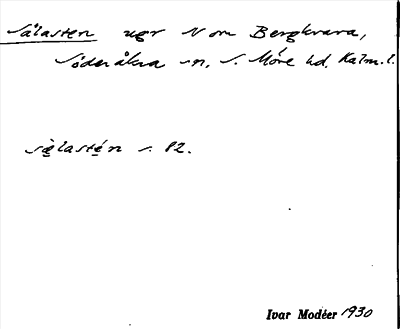 Sälasten ugr N om Bergkvara,
Söderåkra sn, S. Möre hd. Kalm. l.
sä̀lastén s. 82.
Ivar Modéer 1930